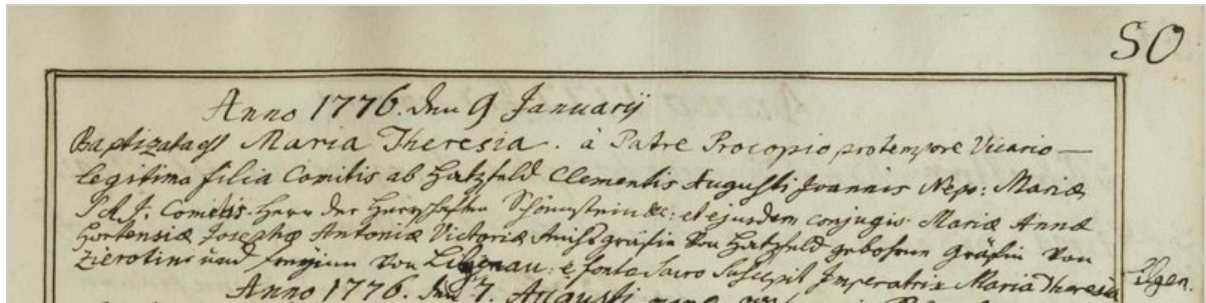 50
Anno 1776. den 9 January
Baptizata est Maria Theresia. à Patre Procopio protempore Vicario —
Legitima filia Comitis ab Hatzfeld Clementis Augusti Joannis Nep: Mariæ
Comitis Herr der Herrschaften Schönstein &c: et ejusdem conjugis Mariæ Annæ
Hortensiæ Josephæ Antoniæ Victoriæ gräfin von Hatzfeld gebohrene Gräfin von
Zierotin und freyinn von Lilgenau: e fonte Sacro Suscepit Imperatrix Maria Theresia
Anno 1776. den 7. Augusti